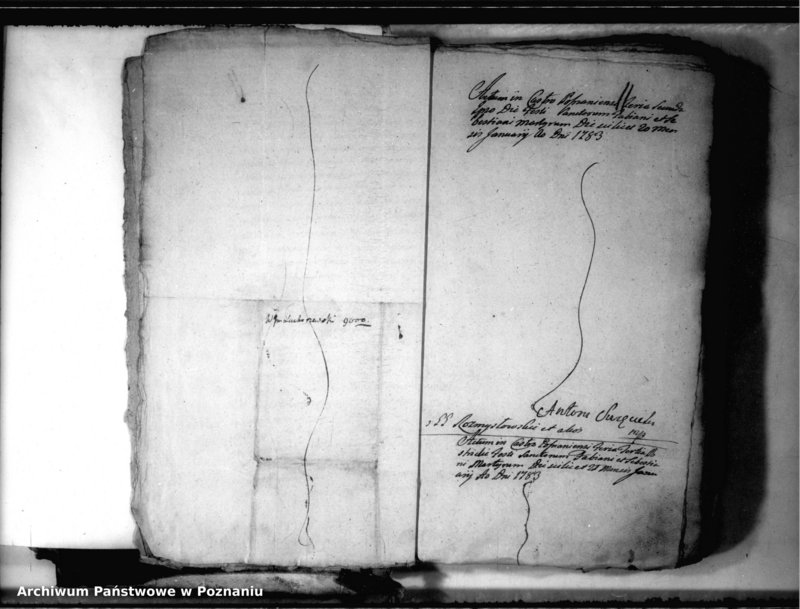 9000
Actum in Castro Posnaniensi Feria Secunda
ipso Die Festi Sanctorum Fabiani et Se
bastiani Martyrum Die scilicet 20 Men
sis Januarij Ao Dni 1783
Antoni
SS Rozmysłowskie et alios
Actum in Castro Posnaniensi Feria Tertia
Festi Sanctorum Fabiani et Sebastia
ni Martyrum Die scilicet 21 Mensis Janu
arij Ao Dni 1783
Archiwum Państwowe w Poznaniu